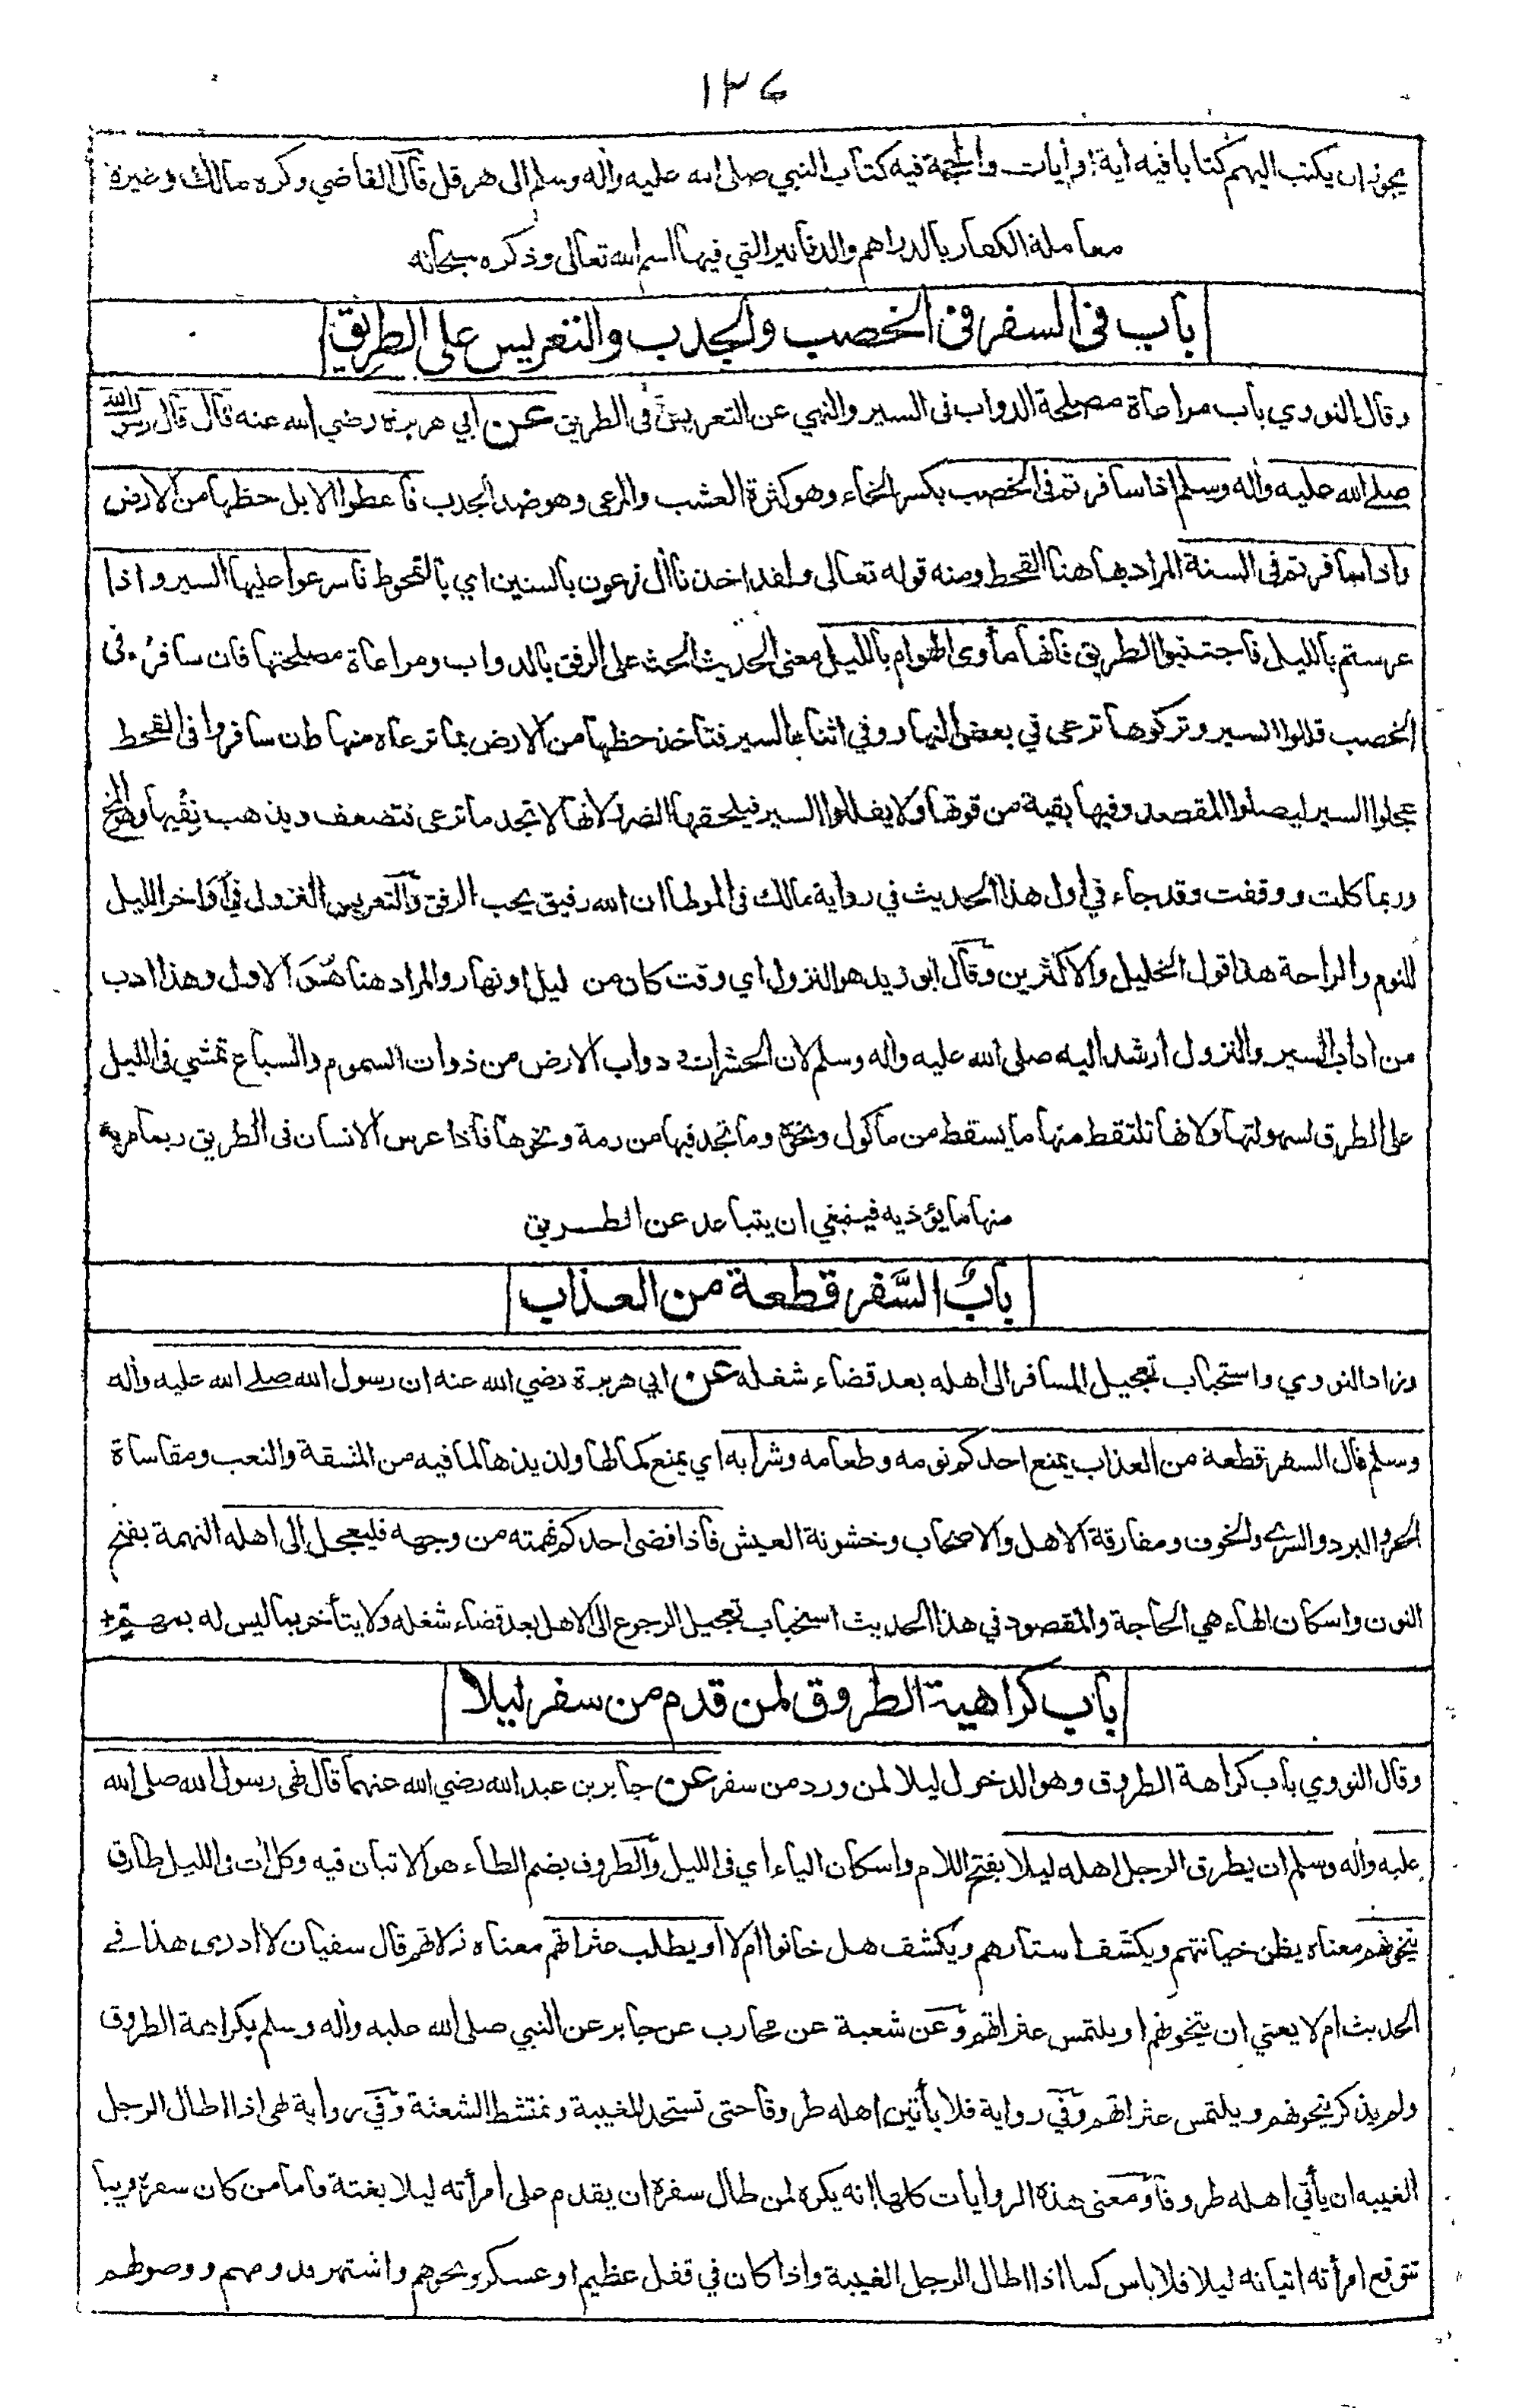 ١٣٤
يجوز ان يكتب اليهم كتابا فيه اية او أيات والحجة فيه كتاب النبي صلى الله عليه واله وسلم الى هرقل قال القاضي وكره مالك وغيره
معاملة الكفار بالدراهم والدنانير التي فيها اسم الله تعالى وذكره سبحانه
باب في السفر في الخصب والجدب والتعريس على الطريق
وقال النووي باب مراعاة مصلحة الدواب فى السير والنهي عن التعريس فى الطريق عن ابي هريرة رضي الله عنه قال قال رسول الله
صلى الله عليه واله وسلم اذا سافرتم فى الخصب بكسر الخاء وهو كثرة العشب والمرعى وهو ضد الجدب فاعطوا الابل حظها من الارض
واذا سافرتم فى السنة المراد بها هنا القحط ومنه قوله تعالى ولقد اخذنا أل فرعون بالسنين اي بالقحوط فاسرعوا عليها السير واذا
عرستم بالليل فاجتنبوا الطريق فانها مأوى الهوام بالليل معنى الحديث الحث على الرفق بالدواب ومراعاة مصلحتها فان سافر فى
الخصب قللوا السير وتركوها ترعى في بعض النهار وفي اثناء السير فتاخذ حظها من الارض بما ترعاه منها وان سافروا فى القحط
عجلوا السير ليصلوا المقصد وفيها بقية من قوتها ولا يقللوا السير فيلحقها الضرر لانها لا تجد ما ترعى فتضعف ويذهب نقيها وهو المخ
وربما كلت ووقفت وقد جاء في اول هذا الحديث في رواية مالك فى الموطا ان الله رفيق يحب الرفق والتعريس النزول في أواخر الليل
للنوم والراحة هذا قول الخليل والاكثرين وقال ابو زيد هو النزول اي وقت كان من ليل او نهار والمراد هنا هو الاول وهذا ادب
من اداب السير والنزول ارشد اليه صلى الله عليه واله وسلم لان الحشرات و دواب الارض من ذوات السموم والسباع تمشي فى الليل
على الطرق لسهولتها ولانها تلتقط منها ما يسقط من مأكول ونحوه وما تجد فيها من رمة ونحوها فاذا عرس الانسان فى الطريق ربما مر به
منها ما يؤذيه فينبغي ان يتباعد عن الطريق
باب السَّفر قطعة من العذاب
وزاد النووي واستحباب تعجيل المسافر الى اهله بعد قضاء شغله عن ابي هريرة رضي الله عنه ان رسول الله صلى الله عليه واله
وسلم قال السفر قطعة من العذاب يمنع احدكم نومه وطعامه وشرابه اي يمنع كمالها ولذيذها لما فيه من المشقة والتعب ومقاساة
الحر والبرد والسرى والخوف ومفارقة الاهل والاصحاب وخشونة العيش فاذا قضى احدكم نهمته من وجهه فليعجل إلى اهله النهمة بفتح
النون واسكان الهاء هي الحاجة والمقصود في هذا الحديث استحباب تعجيل الرجوع الى الاهل بعد قضاء شغله ولا يتأخر بما ليس له بمهم
باب كراهية الطروق لمن قدم من سفر ليلا
وقال النووي باب كراهة الطروق وهو الدخول ليلا لمن ورد من سفر عن جابر بن عبد الله رضي الله عنهما قال نهى رسول الله صلى الله
عليه واله وسلم ان يطرق الرجل اهله ليلا بفتح اللام واسكان الياء اي فى الليل والطروق بضم الطاء هو الاتيان فيه وكل أت فى الليل طارق
يتخونهم معناه يظن خيانتهم ويكشف استارهم ويكشف هل خانوا ام لا او يطلب عثراتهم معناه زلاتهم قال سفيان لا ادرى هذا في
الحديث ام لا يعني ان يتخونهم او يلتمس عثراتهم وعن شعبة عن محارب عن جابر عن النبي صلى الله عليه واله وسلم بكراهة الطروق
ولم يذكر يتخونهم ويلتمس عثراتهم وفي رواية فلا يأتين اهله طروقا حتى تستحد المغيبة وتمتشط الشعثة وفي رواية نهى اذا اطال الرجل
الغيبه ان يأتي اهله طروقا ومعنى هذه الروايات كلها انه يكره لمن طال سفره ان يقدم على امرأته ليلا بغتة فاما من كان سفره قريبا
تتوقع امرأته اتيانه ليلا فلا باس كما اذا اطال الرجل الغيبة واذا كان في قفل عظيم او عسكر ونحوهم واشتهر قدومهم ووصولهم